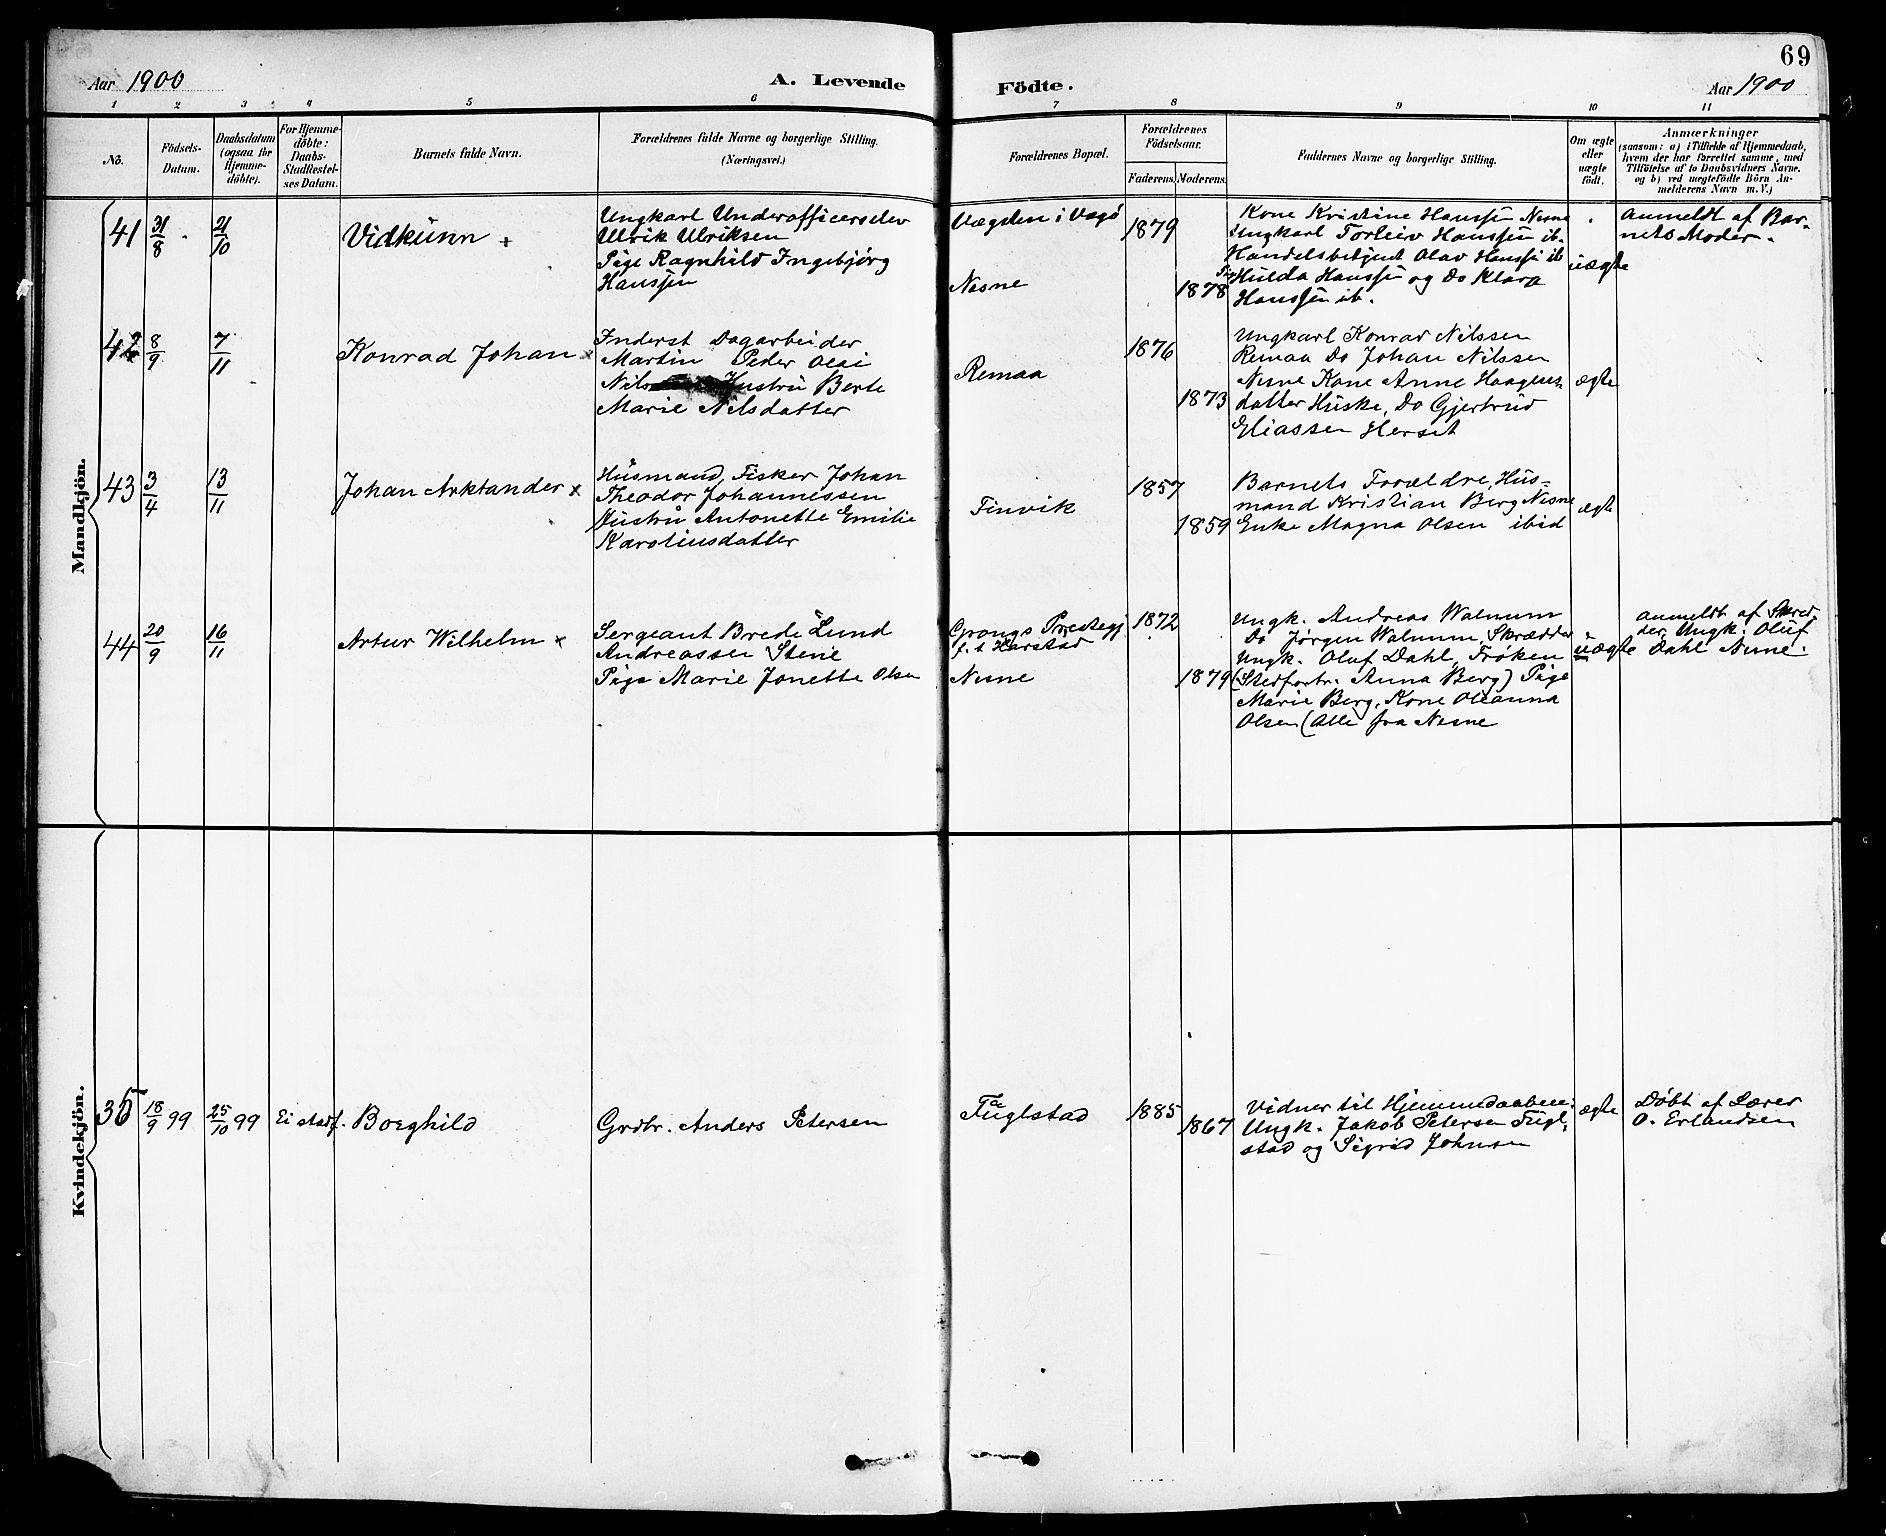 69
Aar 1900
A. Levende
Födte.
Aar 1900
1 2 3 4 5 6 7 8 9 10 11
No.
Födsels-
Datum.
Daabsdatum
(ogsaa for
Hjemme-
döbte).
For Hjemme-
döbte:
Daabs-
Stadfæstel-
ses Datum.
Barnets fulde Navn.
Forældrenes fulde Navne og borgerlige Stilling.
(Næringsvei.)
Forældrenes Bopæl.
Forældrenes
Födselsaar.
Faderens. Moderens.
Faddernes Navne og borgerlige Stilling.
Om ægte
eller
uægte
födt.
Anmærkninger
(saasom: a) i Tilfælde af Hjemmedaab,
hvem der har forrettet samme, med
Tilföielse af to Daabsvidners Navne.
og b) ved uægtefödte Börn An-
melderens Navn m. V.)
Mandkjön.
41
31/8
21/10
Vidkunn
Ungkarl Underofficerselev
Ulrik Ulriksen
Pige Ragnhild Ingebjørg
Hanssen
Vægsten i Vagö
Nesne
1879
1878
Kone Kristine Hanssen Nesne
Ungkarl Torleiv Hanssen ib.
Handelsbetjent Olav Hanssen ib
Pige Hulda Hanssen og Do Klara
Hanssen ib.
uægte
Anmeldt af Bar-
nets Moder.
42
8/9
7/11
Konrad Johan
Inderst Dagarbeider
Martin Peder Olai
Nils Hustru Berte
Marie Nilsdatter
Remaa
1876
1873
Ungkarl Konrad Nilssen
Remaa Do Johan Nilssen
Nesne Kone Anne Haagens-
datter Huske, Do Gjertrud
Eliassen Herset
ægte
43
3/4
13/11
Johan Arktander
Husmand, Fisker Johan
Theodor Johannessen
Hustru Antonette Emilie
Karolinsdatter
Finvik
1857
1859
Barnets Forældre, Hus-
mand Kristian Berg Nesne
Enke Magna Olsen ibid
ægte
44
20/9
16/11
Artur Wilhelm
Sergeant Brede Lund
Andreassen Stene
Pige Marie Jonette Olsen
Grongs Prestegj
f. t Harstad
Nesne
1872
1879
Ungk. Andreas Walnum
Do Jørgen Walnum, Skrædder
Ungk. Oluf Dahl, Frøken
(Stedfortr. Anna Berg) Pige
Marie Berg, Kone Oleanna
Olsen (Alle fra Nesne
uægte
Anmeldt af Skred
der Ungk. Oluf
Dahl Nesne.
Kvindekjön.
35
18/9 99
25/10 99
Ei stadf.
Borghild
Grdbr. Anders Petersen
Fuglstad
1885
1867
Vidner til Hjemmedaaben:
Ungk. Jakob Petersen Fugl-
stad og Sigrid Johnsen
ægte
Døbt af Lærer
O. Erlandsen